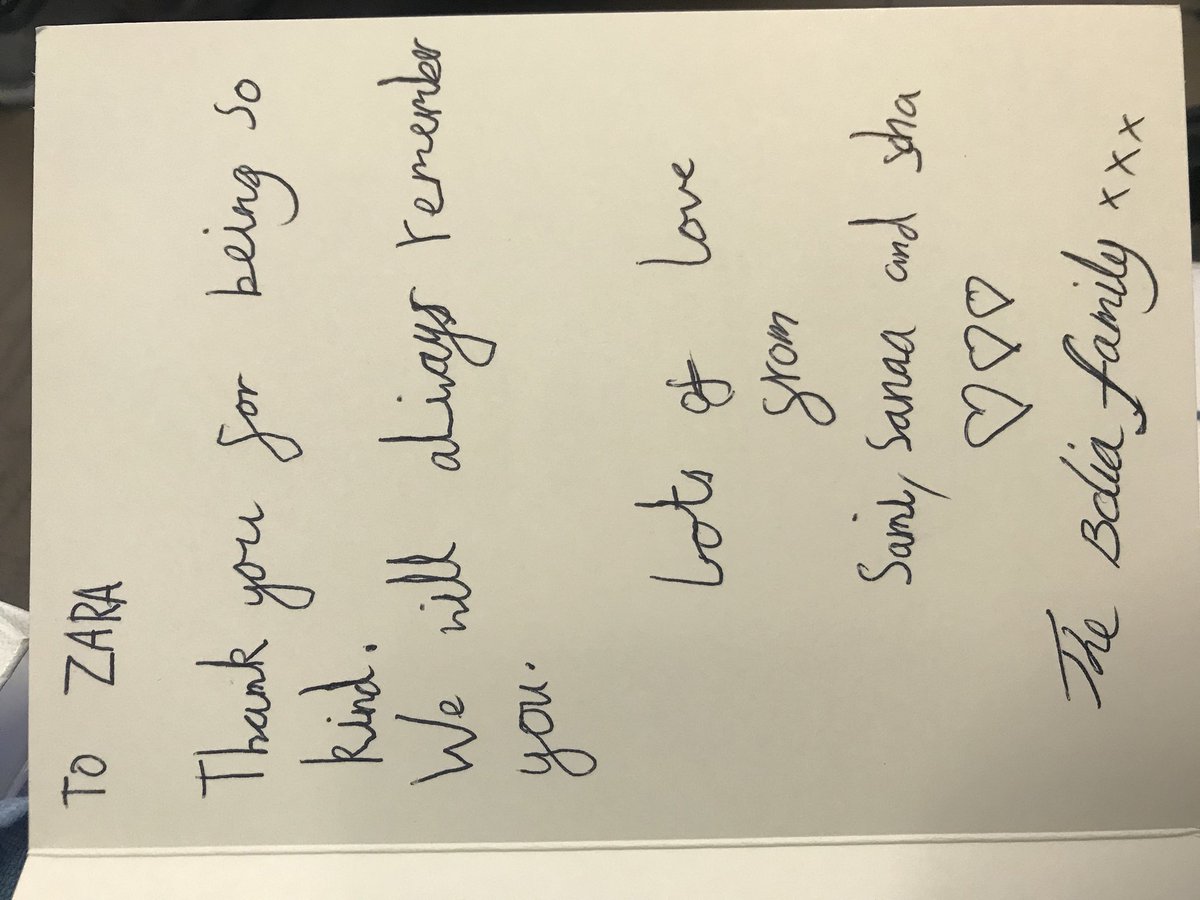 To ZARA
Thank you for being so
kind.
We will always remember
you.
Lots of Love
from
Sanaa and
The family xxx